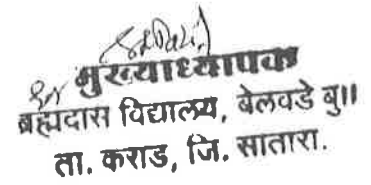 मुख्याध्यापक
ब्रह्मदास विद्यालय, बेलवडे बु॥
ता. कराड, जि. सातारा.